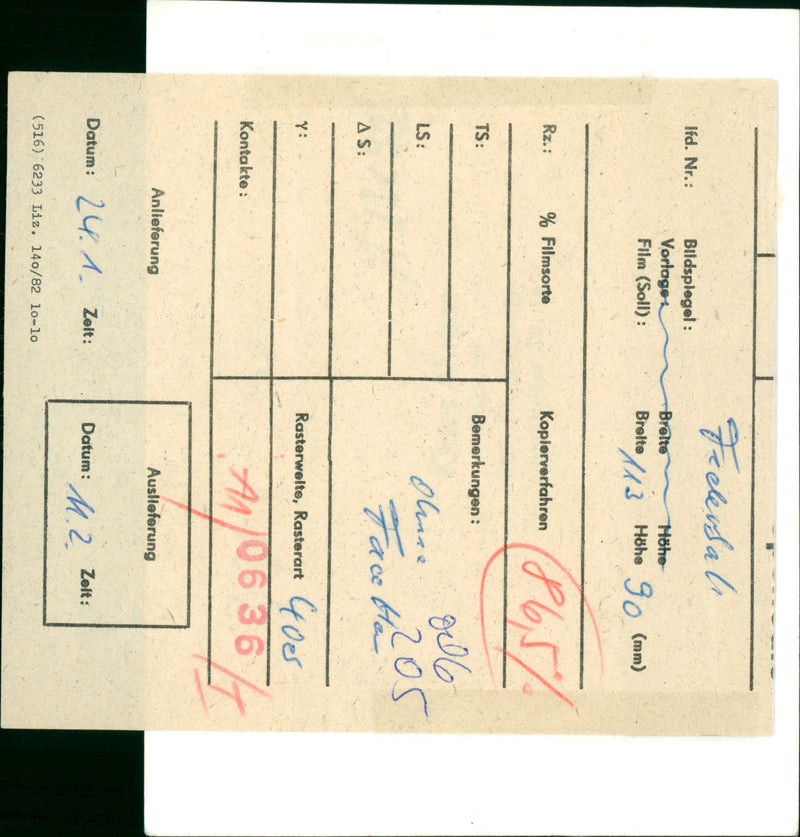 lfd. Nr.: Bildspiegel:
Vorlage: Breite Höhe
Film (Soll): Breite 113 Höhe 90 (mm)
Rz.: % Filmsorte Kopierverfahren 86,5%
TS: Bemerkungen:
LS: ohne
Δ S: 205
γ: Rasterweite, Rasterart 40er
Kontakte: 0636 /I
Anlieferung Auslieferung
Datum: 24.1. Zeit: Datum: 11.2. Zeit:
(516) 6233 Liz. 140/82 10-10